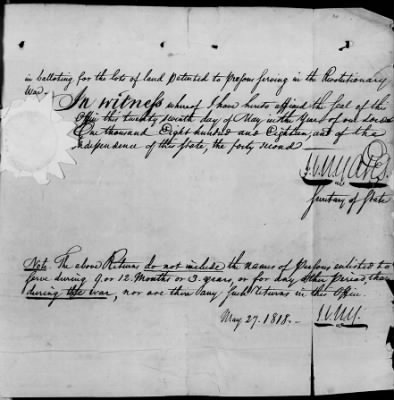 in balloting for the lots of land patented to persons serving in the Revolutionary
War.
In witness whereof I have hereto affixed the seal of this
Office this twenty seventh day of May in the Year of our Lord
One thousand Eight hundred and Eighteen, and of the
independence of this State, the forty second
Secretary of State
Note. The above Returns do not include the names of Persons enlisted to
serve during 9. or 12. Months or 3. years, or for any other period, than
during the war, nor are there any such returns in this Office.
May 27. 1818.